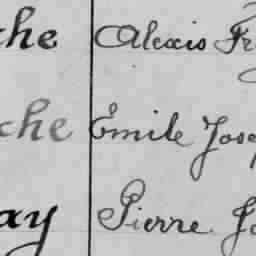 che Alexis Fr
che Émile Jose
ay Pierre Jo